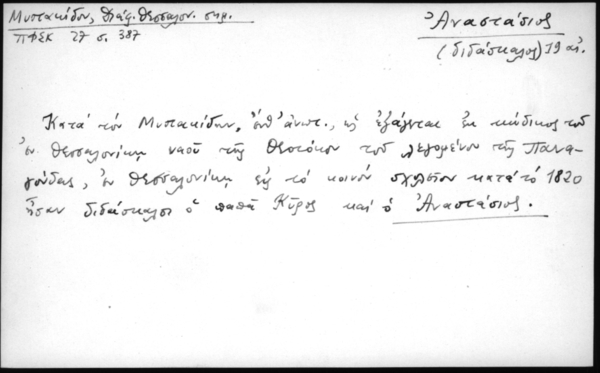 Μυστακίδου, Διάφ. Θεσσαλον. σημ.
ΠΦΣΚ 27 σ. 387
Ἀναστάσιος
(διδάσκαλος) 19 αἰ.
Κατά τόν Μυστακίδην, ἔνθ' ἀνωτ., ὡς ἐξάγεται ἐκ κώδικος τοῦ
ἐν Θεσσαλονίκῃ ναοῦ τῆς Θεοτόκου τοῦ λεγομένου τῆς Πανα-
γούδας, ἐν Θεσσαλονίκῃ εἰς τό κοινόν σχολεῖον κατά τό 1820
ἦσαν διδάσκαλοι ὁ παπᾶ Κῦρος καί ὁ Ἀναστάσιος.